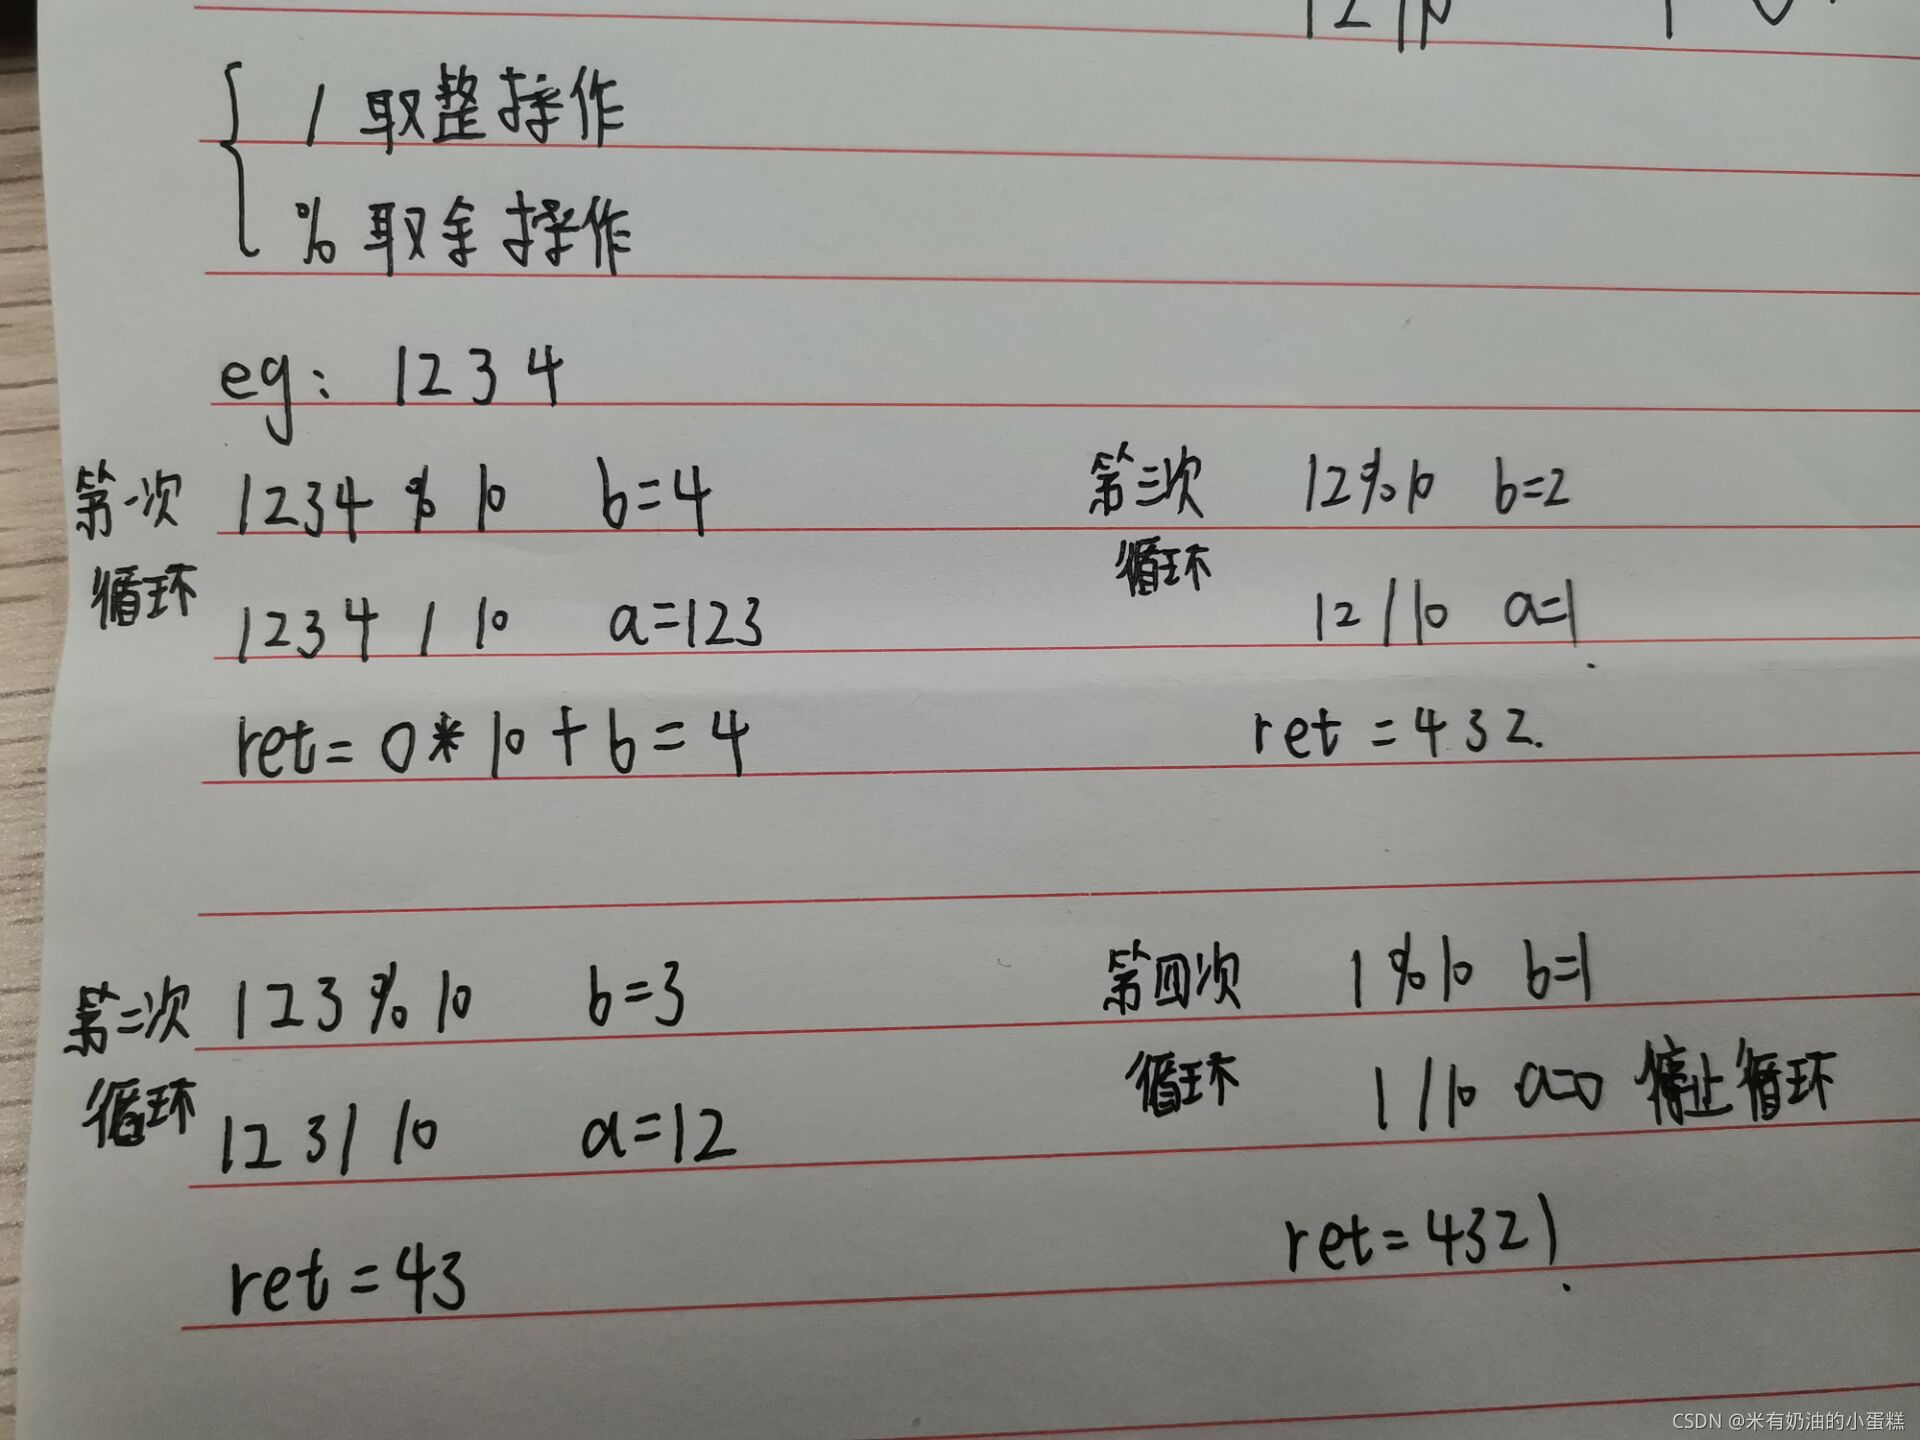 / 取整操作
% 取余操作
eg: 1234
第一次 1234 % 10 b=4
循环 1234 / 10 a=123
ret=0*10+b=4
第二次 123%10 b=3
循环 123/10 a=12
ret=43
第三次 12%10 b=2
循环
12/10 a=1
ret=432.
第四次 1%10 b=1
循环 1/10 a=0 停止循环
ret=4321.
CSDN @米有奶油的小蛋糕